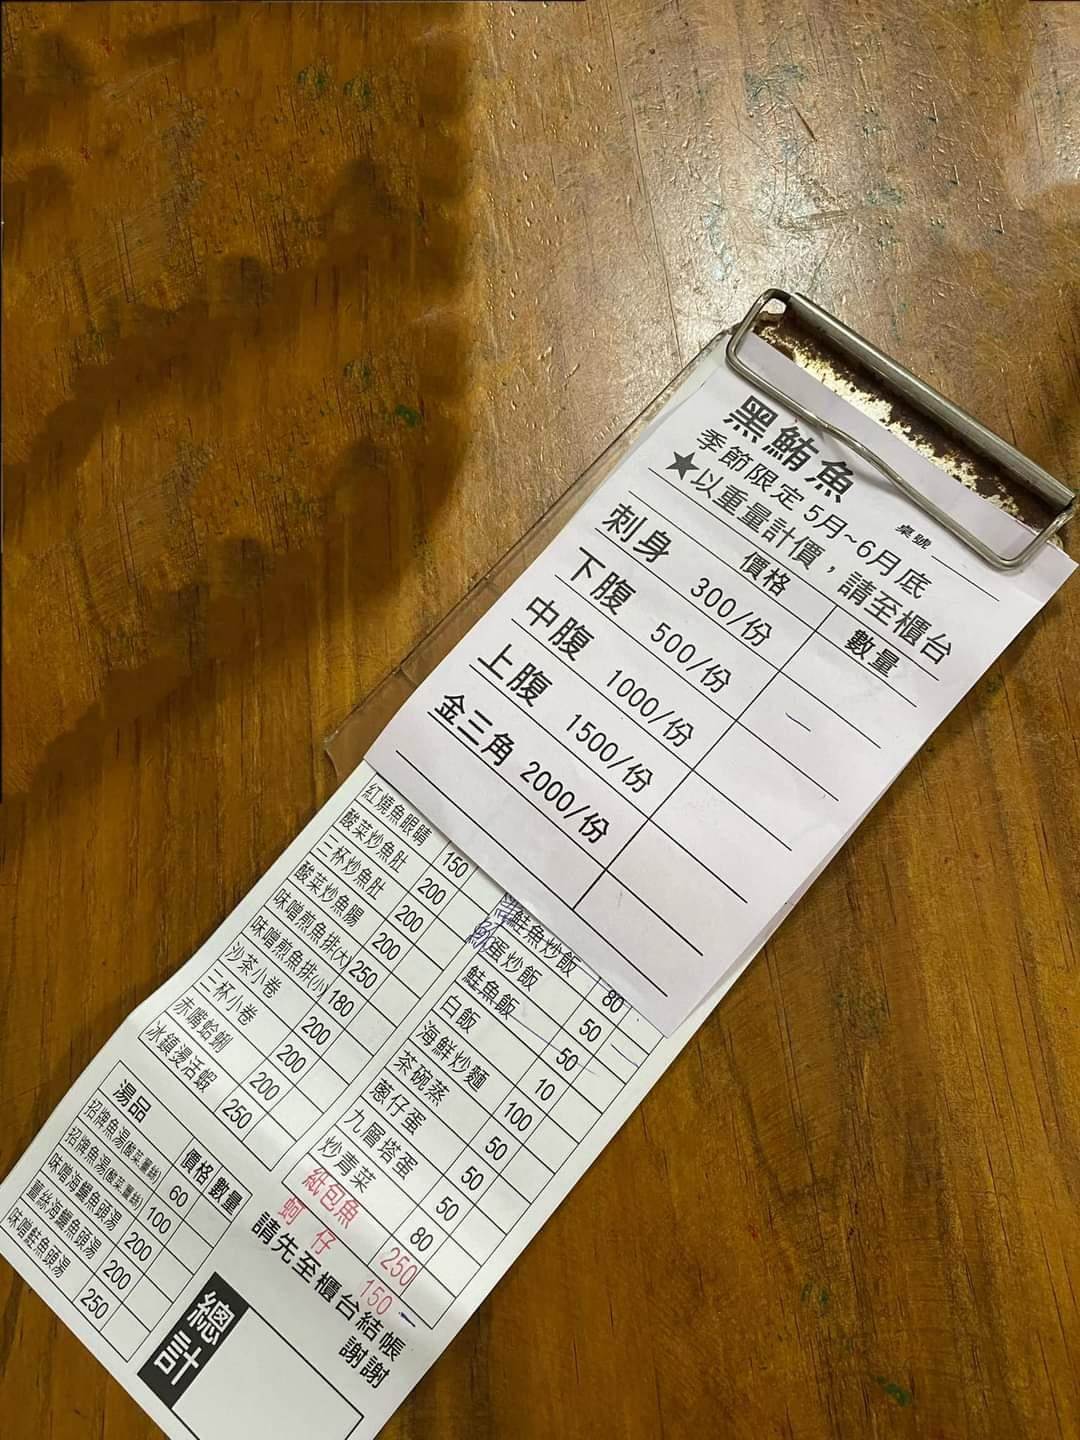 黑鮪魚
桌號
季節限定 5月~6月底
★以重量計價，請至櫃台
價格 數量
刺身 300/份
下腹 500/份
中腹 1000/份
上腹 1500/份
金三角 2000/份
紅燒魚眼睛 150
酸菜炒魚肚 200
三杯炒魚肚 200
酸菜炒魚腸 200
味噌煎魚排(大) 250
味噌煎魚排(小) 180
沙茶小卷 200
三杯小卷 200
赤嘴蛤蜊 200
冰鎮燙活蝦 250
鮭魚炒飯 80
蛋炒飯 50
鮭魚飯 50
白飯 10
海鮮炒麵 100
茶碗蒸 50
蔥仔蛋 50
九層塔蛋 50
炒青菜 80
紙包魚 250
蚵仔 150
湯品 價格 數量
招牌魚湯(酸菜.薑絲) 60
招牌魚湯(酸菜.薑絲) 100
味噌海鱺魚頭湯 200
薑絲海鱺魚頭湯 200
味噌鮭魚頭湯 250
請先至櫃台結帳
謝謝
總計